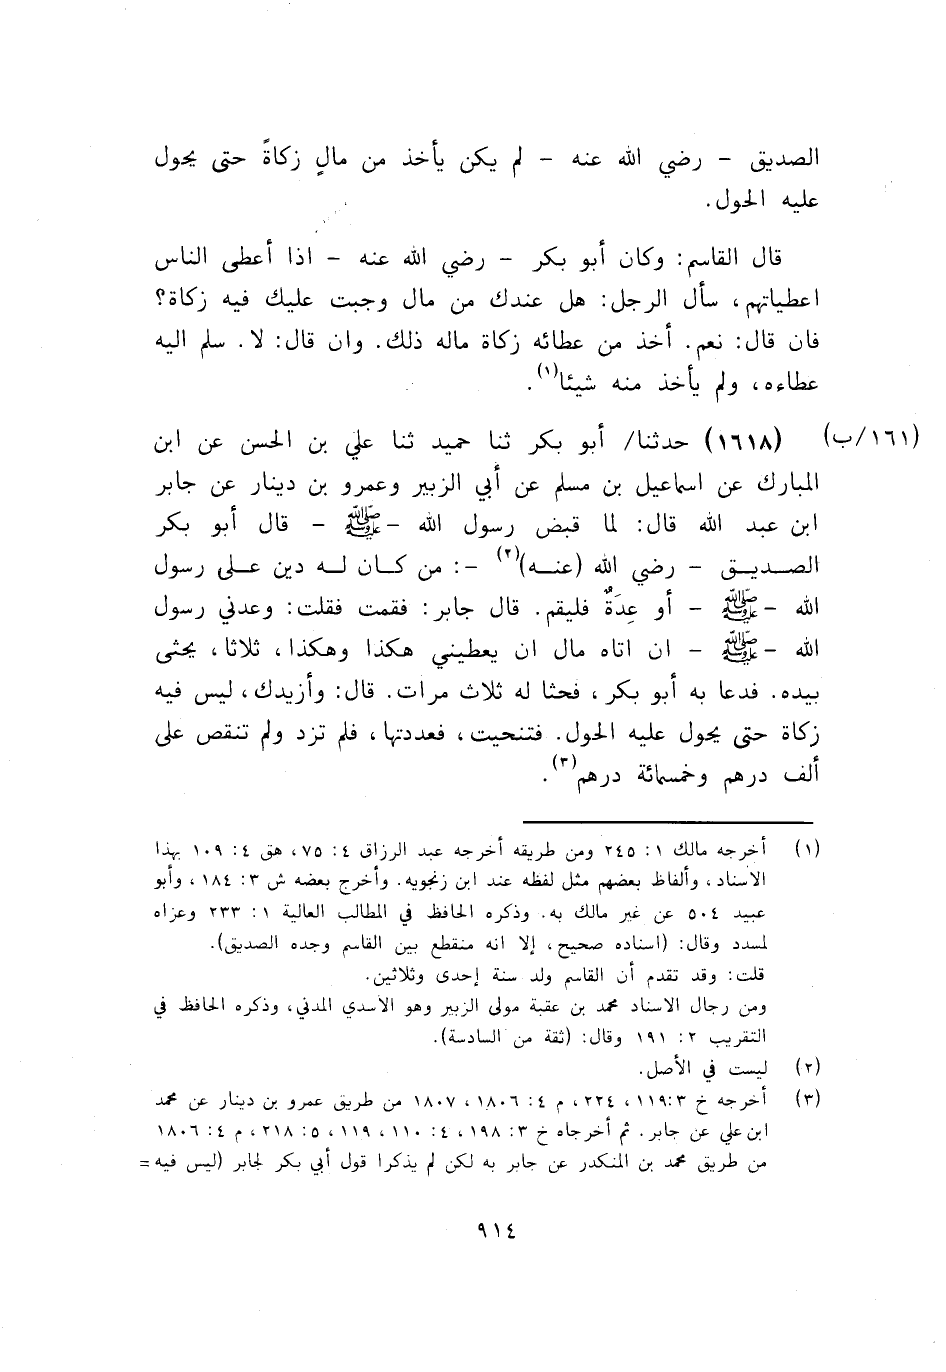 الصديق - رضي الله عنه - لم يكن يأخذ من مالٍ زكاةً حتى يحول
عليه الحول.
قال القاسم: وكان أبو بكر - رضي الله عنه - اذا أعطى الناس
اعطياتهم، سأل الرجل: هل عندك من مال وجبت عليك فيه زكاة؟
فان قال: نعم. أخذ من عطائه زكاة ماله ذلك. وان قال: لا. سلم اليه
عطاءه، ولم يأخذ منه شيئا(١).
(١٦١/ب) (١٦١٨) حدثنا/ أبو بكر ثنا حميد ثنا علي بن الحسن عن ابن
المبارك عن اسماعيل بن مسلم عن أبي الزبير وعمرو بن دينار عن جابر
ابن عبد الله قال: لما قبض رسول الله -ﷺ - قال أبو بكر
الصديق - رضي الله (عنه)(٢) -: من كان له دين على رسول
الله -ﷺ - أو عِدَةٌ فليقم. قال جابر: فقمت فقلت: وعدني رسول
الله -ﷺ - ان اتاه مال ان يعطيني هكذا وهكذا، ثلاثا، يحثى
بيده. فدعا به أبو بكر، فحثا له ثلاث مرات. قال: وأزيدك، ليس فيه
زكاة حتى يحول عليه الحول. فتنحيت، فعددتها، فلم تزد ولم تنقص على
ألف درهم وخمسمائة درهم(٣).
(١) أخرجه مالك ١: ٢٤٥ ومن طريقه أخرجه عبد الرزاق ٤: ٧٥، هق ٤: ١٠٩ بهذا
الاسناد، وألفاظ بعضهم مثل لفظه عند ابن زنجويه. وأخرج بعضه ش ٣: ١٨٤، وأبو
عبيد ٥٠٤ عن غير مالك به. وذكره الحافظ في المطالب العالية ١: ٢٣٣ وعزاه
لمسدد وقال: (اسناده صحيح، إلا انه منقطع بين القاسم وجده الصديق).
قلت: وقد تقدم أن القاسم ولد سنة إحدى وثلاثين.
ومن رجال الاسناد محمد بن عقبة مولى الزبير وهو الأسدي المدني، وذكره الحافظ في
التقريب ٢: ١٩١ وقال: (ثقة من السادسة).
(٢) ليست في الأصل.
(٣) أخرجه خ ٣:١١٩، ٢٢٤، م ٤: ١٨٠٦، ١٨٠٧ من طريق عمرو بن دينار عن محمد
ابن علي عن جابر. ثم أخرجاه خ ٣: ١٩٨، ٤: ١١٠، ١١٩، ٥: ٢١٨، م ٤: ١٨٠٦
من طريق محمد بن المنكدر عن جابر به لكن لم يذكرا قول أبي بكر لجابر (ليس فيه =
٩١٤